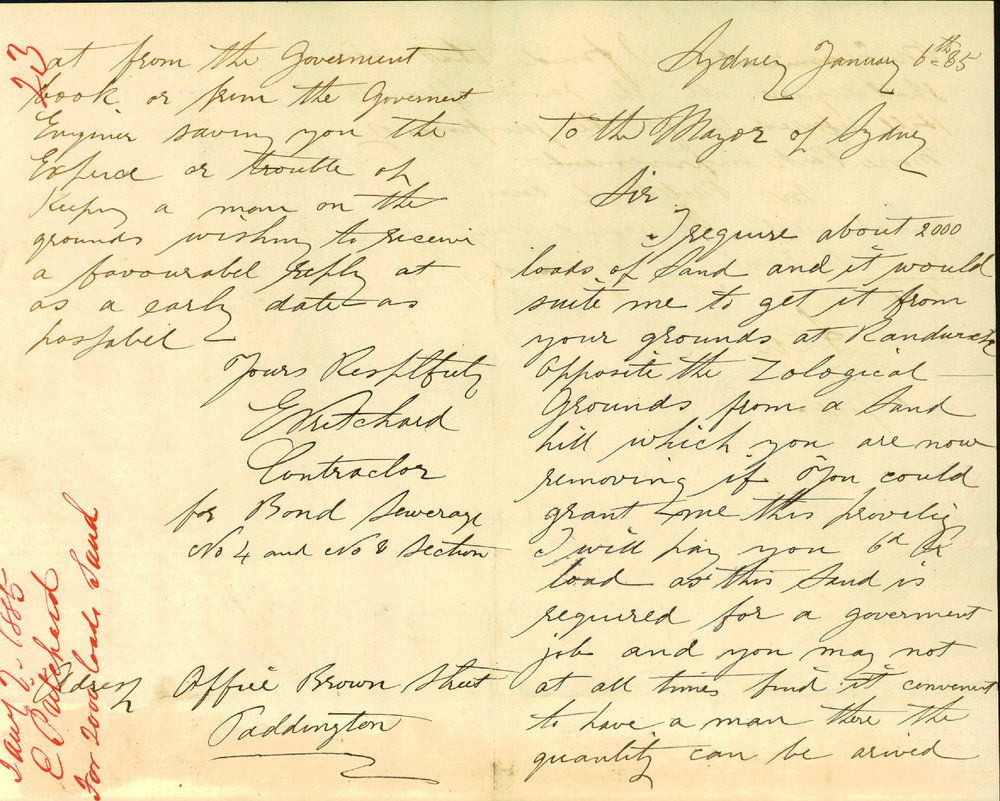 Sydney January 6th 85
To the Mayor of Sydney
Sir
I require about 2000
loads of Sand and it would
suite me to get it from
your grounds at Randwick
Opposite the Zological
Grounds from a Sand
hill which you are now
removing if You could
grant me this provilig
I will pay you 6d Per
load as this Sand is
required for a goverment
job and you may not
at all times find it convenent
to have a man there the
quantity can be arived
at from the Goverment
book or from the Goverment
Enginer saving you the
Expence or trouble of
Keeping a man on the
grounds wishing to receive
a favourabel reply at
as a early date as
possabel
Yours Resptfuly
E Pritchard
Contractor
for Bond Sewerage
No 4 and No 8 Section
Adress Office Brown Street
Paddington
23
Jany 7. 1885
E Pritchard
For 2000 loads Sand